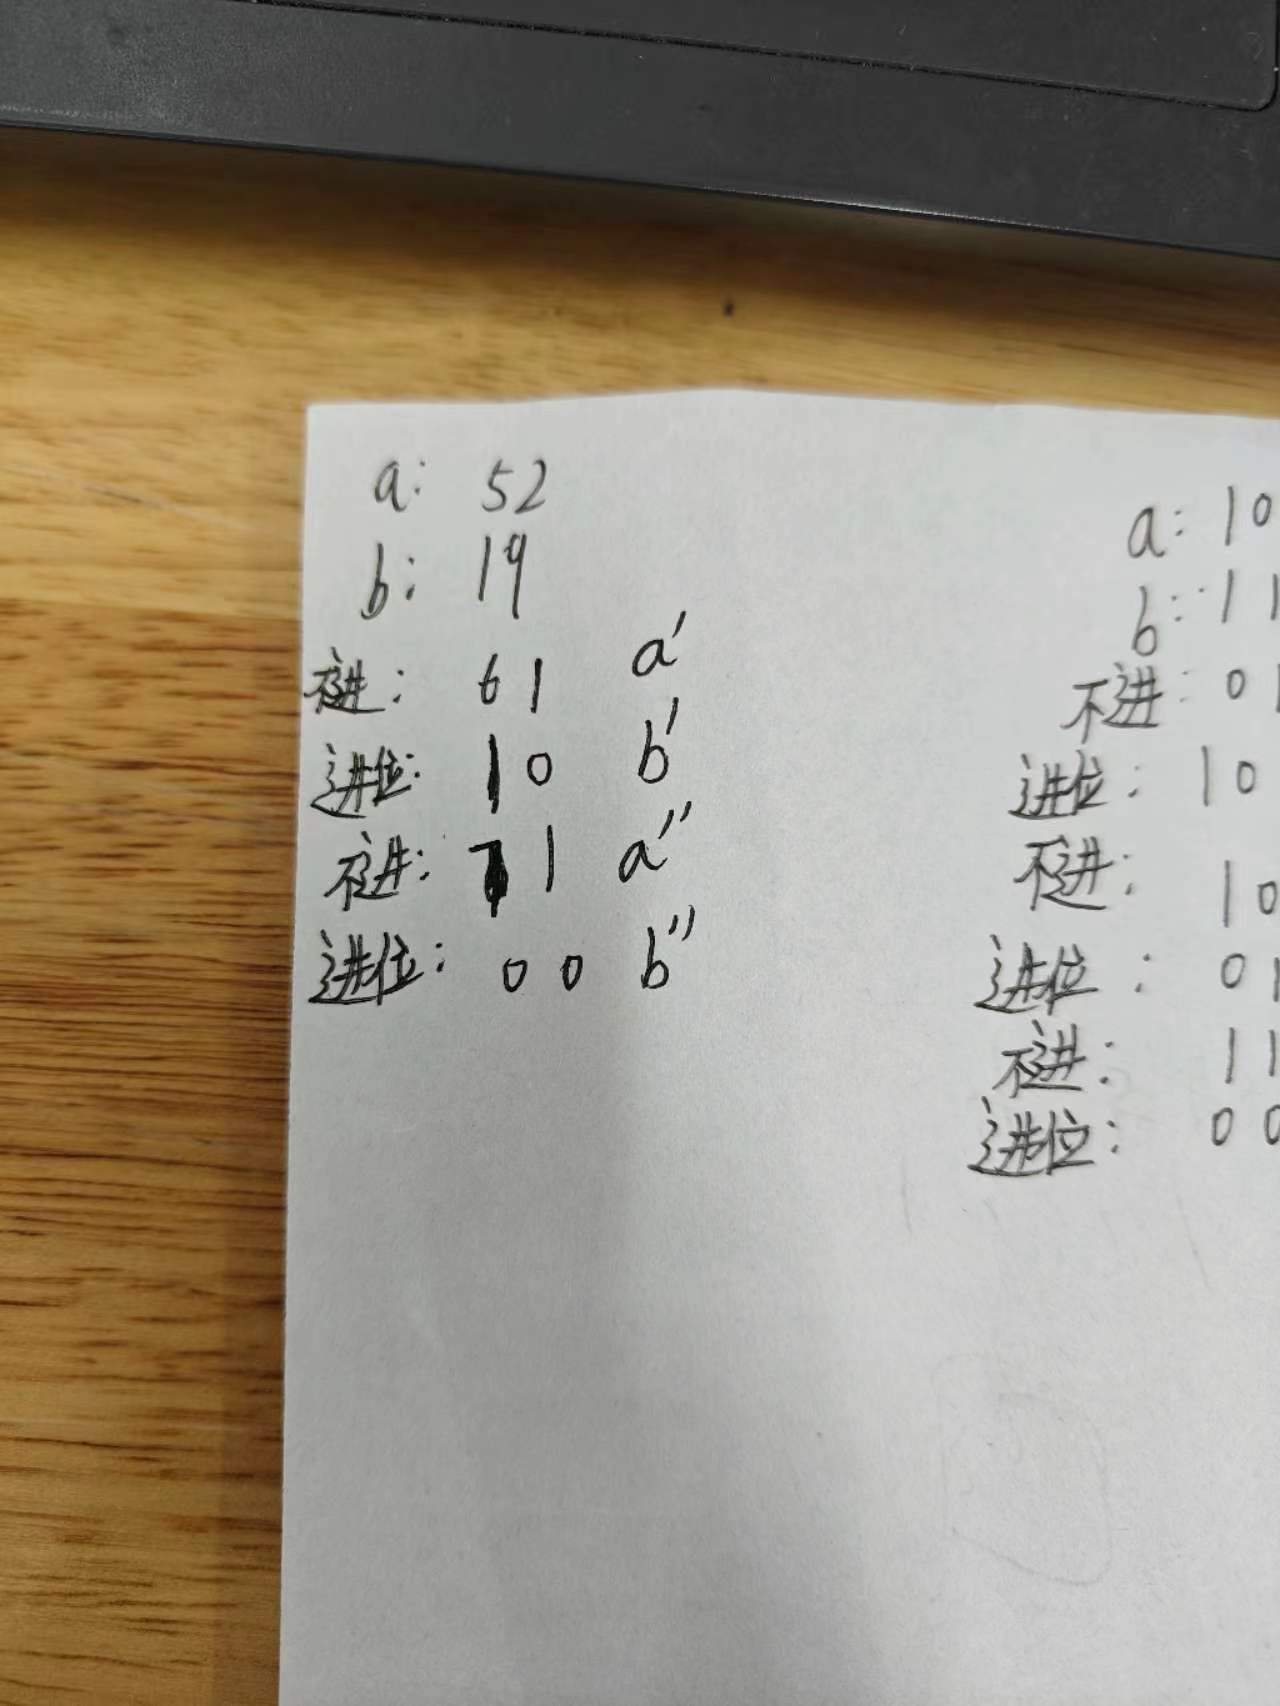 a: 52
b: 19
不进: 61 a'
进位: 10 b'
不进: 71 a''
进位: 00 b''
a: 10
b: 11
不进: 01
进位: 10
不进: 10
进位: 01
不进: 11
进位: 00